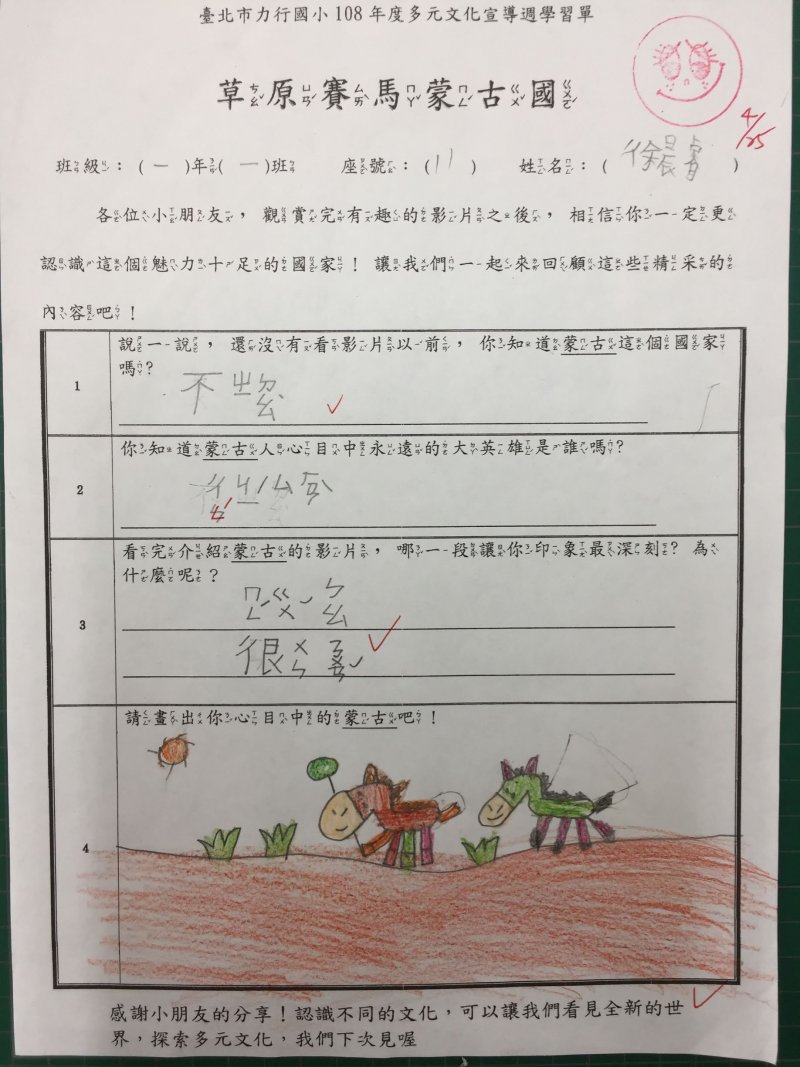 臺北市力行國小108年度多元文化宣導週學習單
草原賽馬蒙古國
4/25
班級：(一)年(一)班 座號：(11) 姓名：(徐晨睿)
各位小朋友，觀賞完有趣的影片之後，相信你一定更
認識這個魅力十足的國家！讓我們一起來回顧這些精采的
內容吧！
1
說一說，還沒有看影片以前，你知道蒙古這個國家
嗎？
不ㄓㄉㄠ
2
你知道蒙古人心目中永遠的大英雄是誰嗎？
3
看完介紹蒙古的影片，哪一段讓你印象最深刻？為
什麼呢？
ㄇㄥˊㄍㄨˇㄅㄠ
很
4
請畫出你心目中的蒙古吧！
感謝小朋友的分享！認識不同的文化，可以讓我們看見全新的世
界，探索多元文化，我們下次見喔